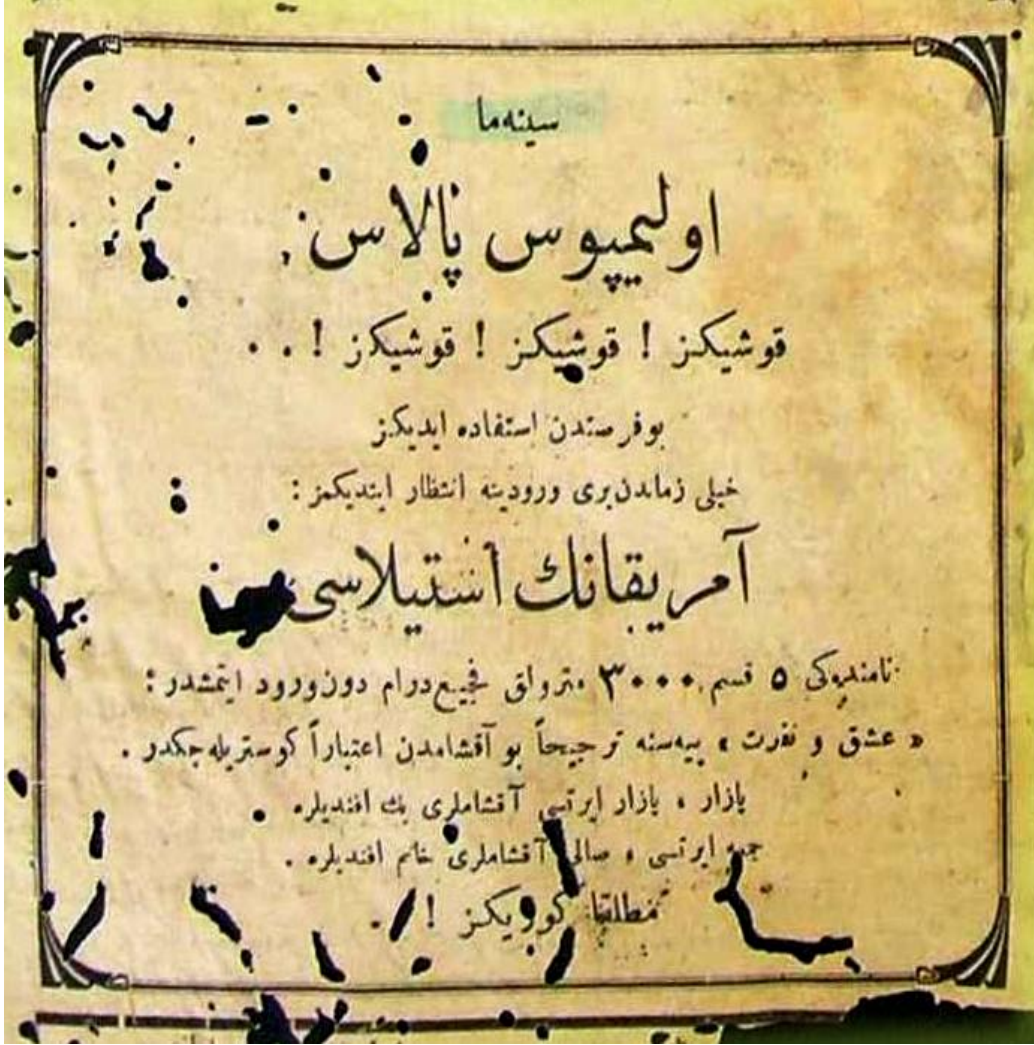 سینه‌ما
اولیمپوس پالاس
قوشیکز ! قوشیکز ! قوشیکز ! . .
بوفرصتدن استفاده ایدیکز
خیلی زماندن‌بری ورودینه انتظار ایتدیکمز :
آمریقانك استیلاسی
نامنده‌کی ۵ قسم ۳۰۰۰ مترولق فجیع‌درام دون‌ورود ایتمشدر :
« عشق و نفرت » پیه‌سنه ترجیحاً بو آقشامدن اعتباراً کوستریله‌جکدر .
بازار ، بازار ایرتسی آقشاملری بك افندیلره
جمعه ایرتسی ، صالی آقشاملری خانم افندیلره .
مطلقا کوریکز ! . .